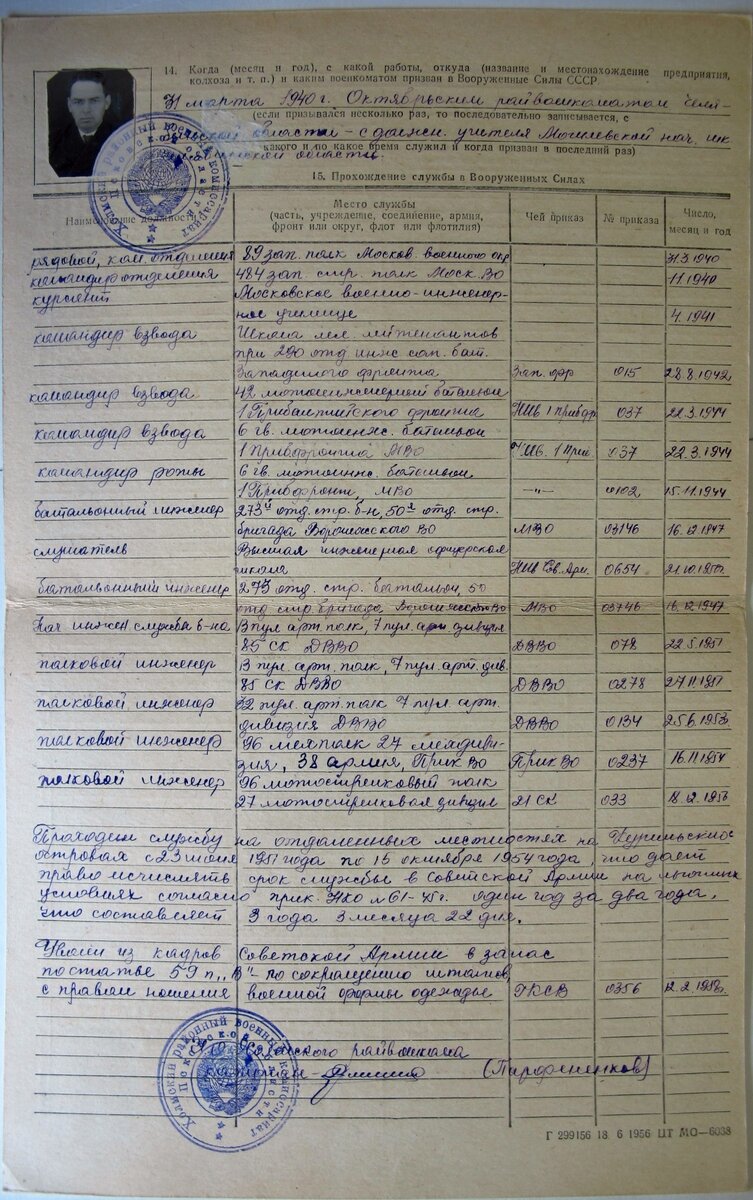 14. Когда (месяц и год), с какой работы, откуда (название и местонахождение предприятия,
колхоза и т. п.) и каким военкоматом призван в Вооруженные Силы СССР
31 марта 1940 г. Октябрьским райвоенкоматом Челя-
(если призывался несколько раз, то последовательно записывается, с
области – с должн. учителя нач. шк.
какого и по какое время служил и когда призван в последний раз)
области.
15. Прохождение службы в Вооруженных Силах
Наименование должности
Место службы
(часть, учреждение, соединение, армия,
фронт или округ, флот или флотилия)
Чей приказ
№ приказа
Число,
месяц и год
рядовой, ком. отделения 89 зап. полк Москов. военного окр 31.3.1940
командир отделения 484 зап. стр. полк Моск. ВО 11.1940
курсант Московское военно-инженер-
ное училище 4.1941
командир взвода Школа мл. лейтенантов
при 290 отд инж сап. бат.
Западного фронта Зап. фр 015 28.8.1942
командир взвода 42 мотоинженерный батальон
1 Прибалтийского фронта НИВ 1 Прибфр 037 22.3.1944
командир взвода 6 гв. мотоинж. батальон
1 Прибфронта МВО НИВ. 1 Приб. 037 22.3.1944
командир роты 6 гв. мотоинж. батальон
1 Прибфронт, МВО -"- 0102 15.11.1944
батальонный инженер 273й отд. стр. б-н, 50я отд. стр.
бригада Воронежского ВО МВО 03146 16.12.1947
слушатель Высшая инженерная офицерская
школа НИВ Св. Арм. 0654 21.10.1950
батальонный инженер 273 отд. стр. батальон, 50
отд стр. бригада Воронежского ВО МВО 03746 16.12.1947
Нач инжен. службы б-на 13 пул арт полк, 7 пул. арт. дивизия
85 СК ДВВО ДВВО 078 22.5.1951
полковой инженер 13 пул. арт. полк, 7 пул. арт. див.
85 СК ДВВО ДВВО 0278 27.11.1951
полковой инженер 32 пул. арт полк 7 пул. арт.
дивизия ДВВО ДВВО 0134 25.6.1953
полковой инженер 96 мехполк 27 мехдиви-
зия, 38 армия, Прик ВО Прик ВО 0237 16.11.1954
полковой инженер 96 мотострелковый полк
27 мотострелковая дивизия 21 СК 033 18.12.1956
Проходил службу на отдаленных местностях на Курильских
островах с 23 июня 1951 года по 15 октября 1954 года, что дает
право исчислять срок службы в Советской Армии на льготных
условиях согласно прик. НКО № 61-45 г. один год за два года,
что составляет 3 года 3 месяца 22 дня.
Уволен из кадров Советской Армии в запас
по статье 59 п. „В" – по сокращению штатов,
с правом ношения военной формы одежды ГКСВ 0356 12.2.1958
Холмского райвоенкома
капитан (Парфененков)
Холмский районный военный комиссариат
Псковской области
Холмский районный военный комиссариат
Псковской области
Г 299156 18 6 1956 ЦТ МО—6038